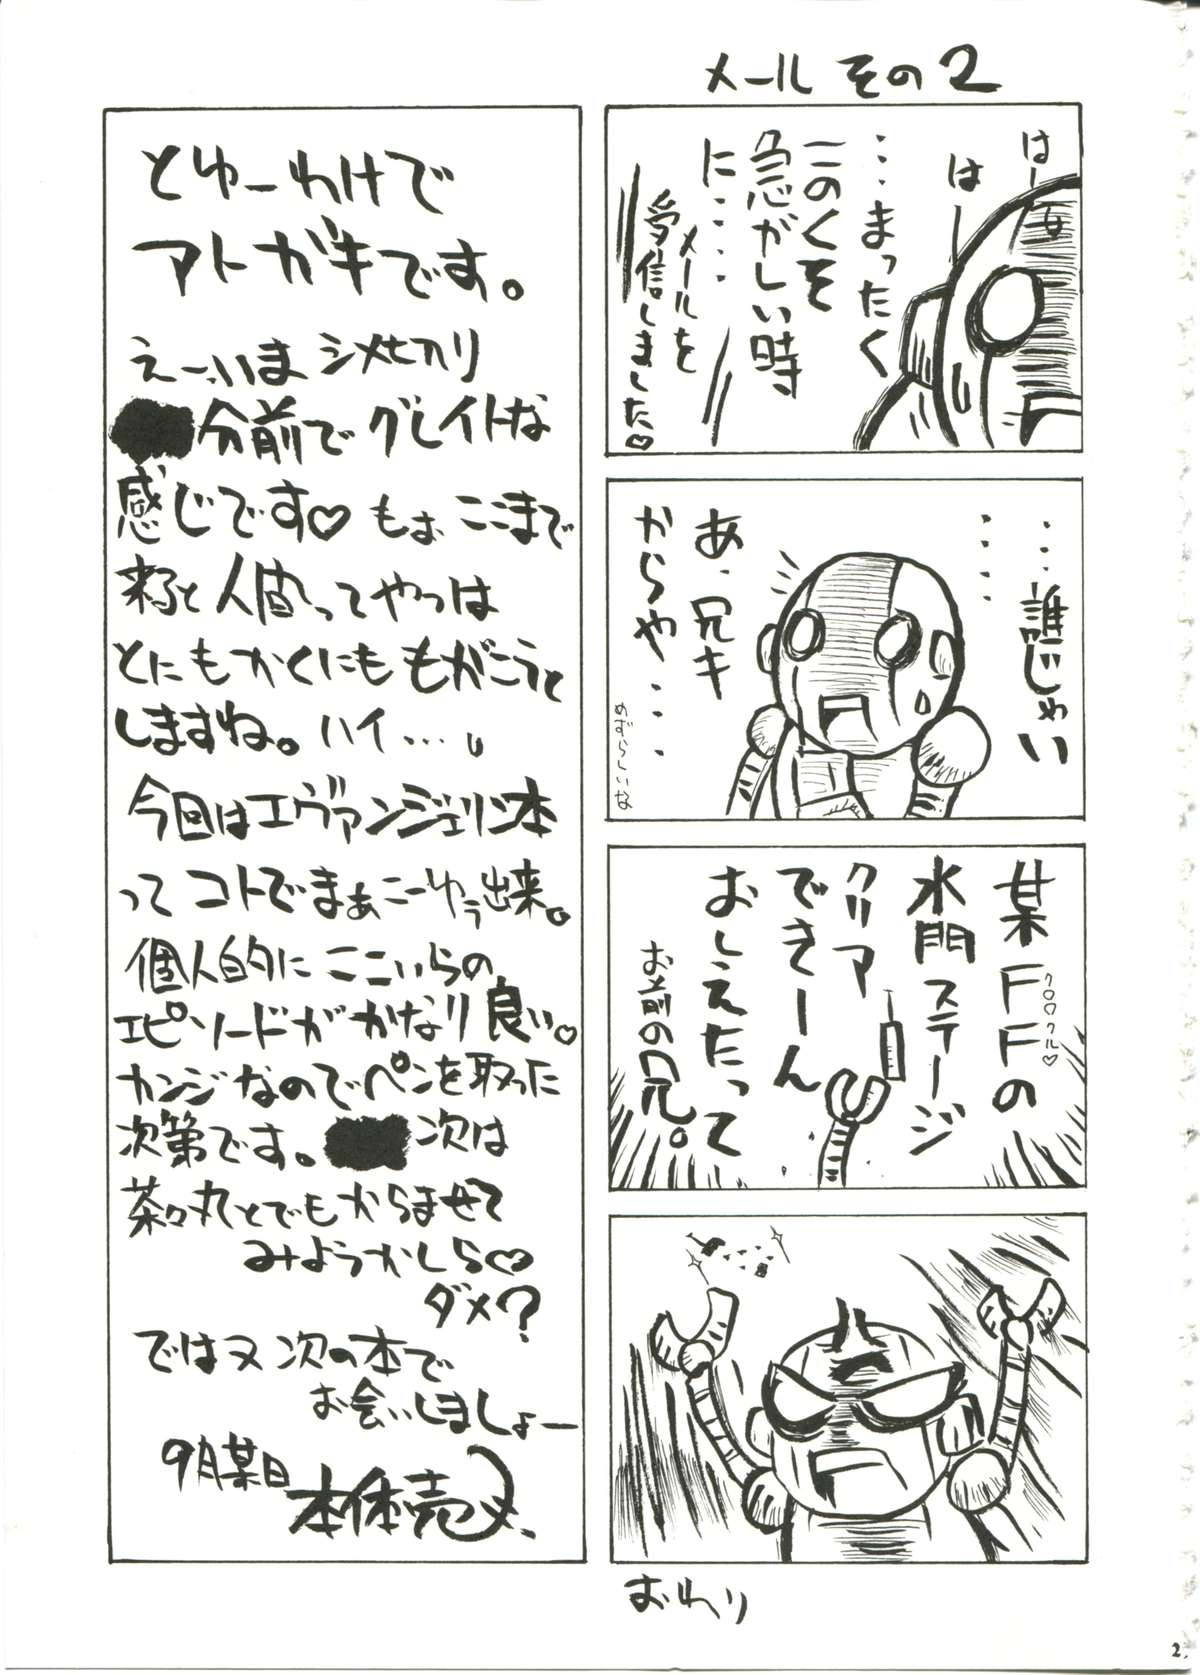 メール その2
はーっ
はーっ
・・・まったく
このくそ
急がしい時
に・・・・
メールを
受信しました♡
・・・誰じゃい
・・・・
あ、兄キ
からや・・・
めずらしいな
某FFの
クロ クル♡
水門ステージ
クリア
できーん
おしえたって
お前の兄。
おわり
とゆーわけで
アトガキです。
えー、いま シメ切り
分前で グレイトな
感じです♡ もぉ ここまで
来ると人間ってやつは
とにもかくにも もがこうと
しますね。ハイ…。
今回はエヴァンジェリン本
って コトでまぁこーゆう出来。
個人的に ここいらの
エピソードが かなり良い。
カンジなのでペンを取った
次第です。 次は
茶々丸とでもからませて
みようかしら♡
ダメ?
ではヌ 次の本で
お会いしましょー
9月某日
本体売
2